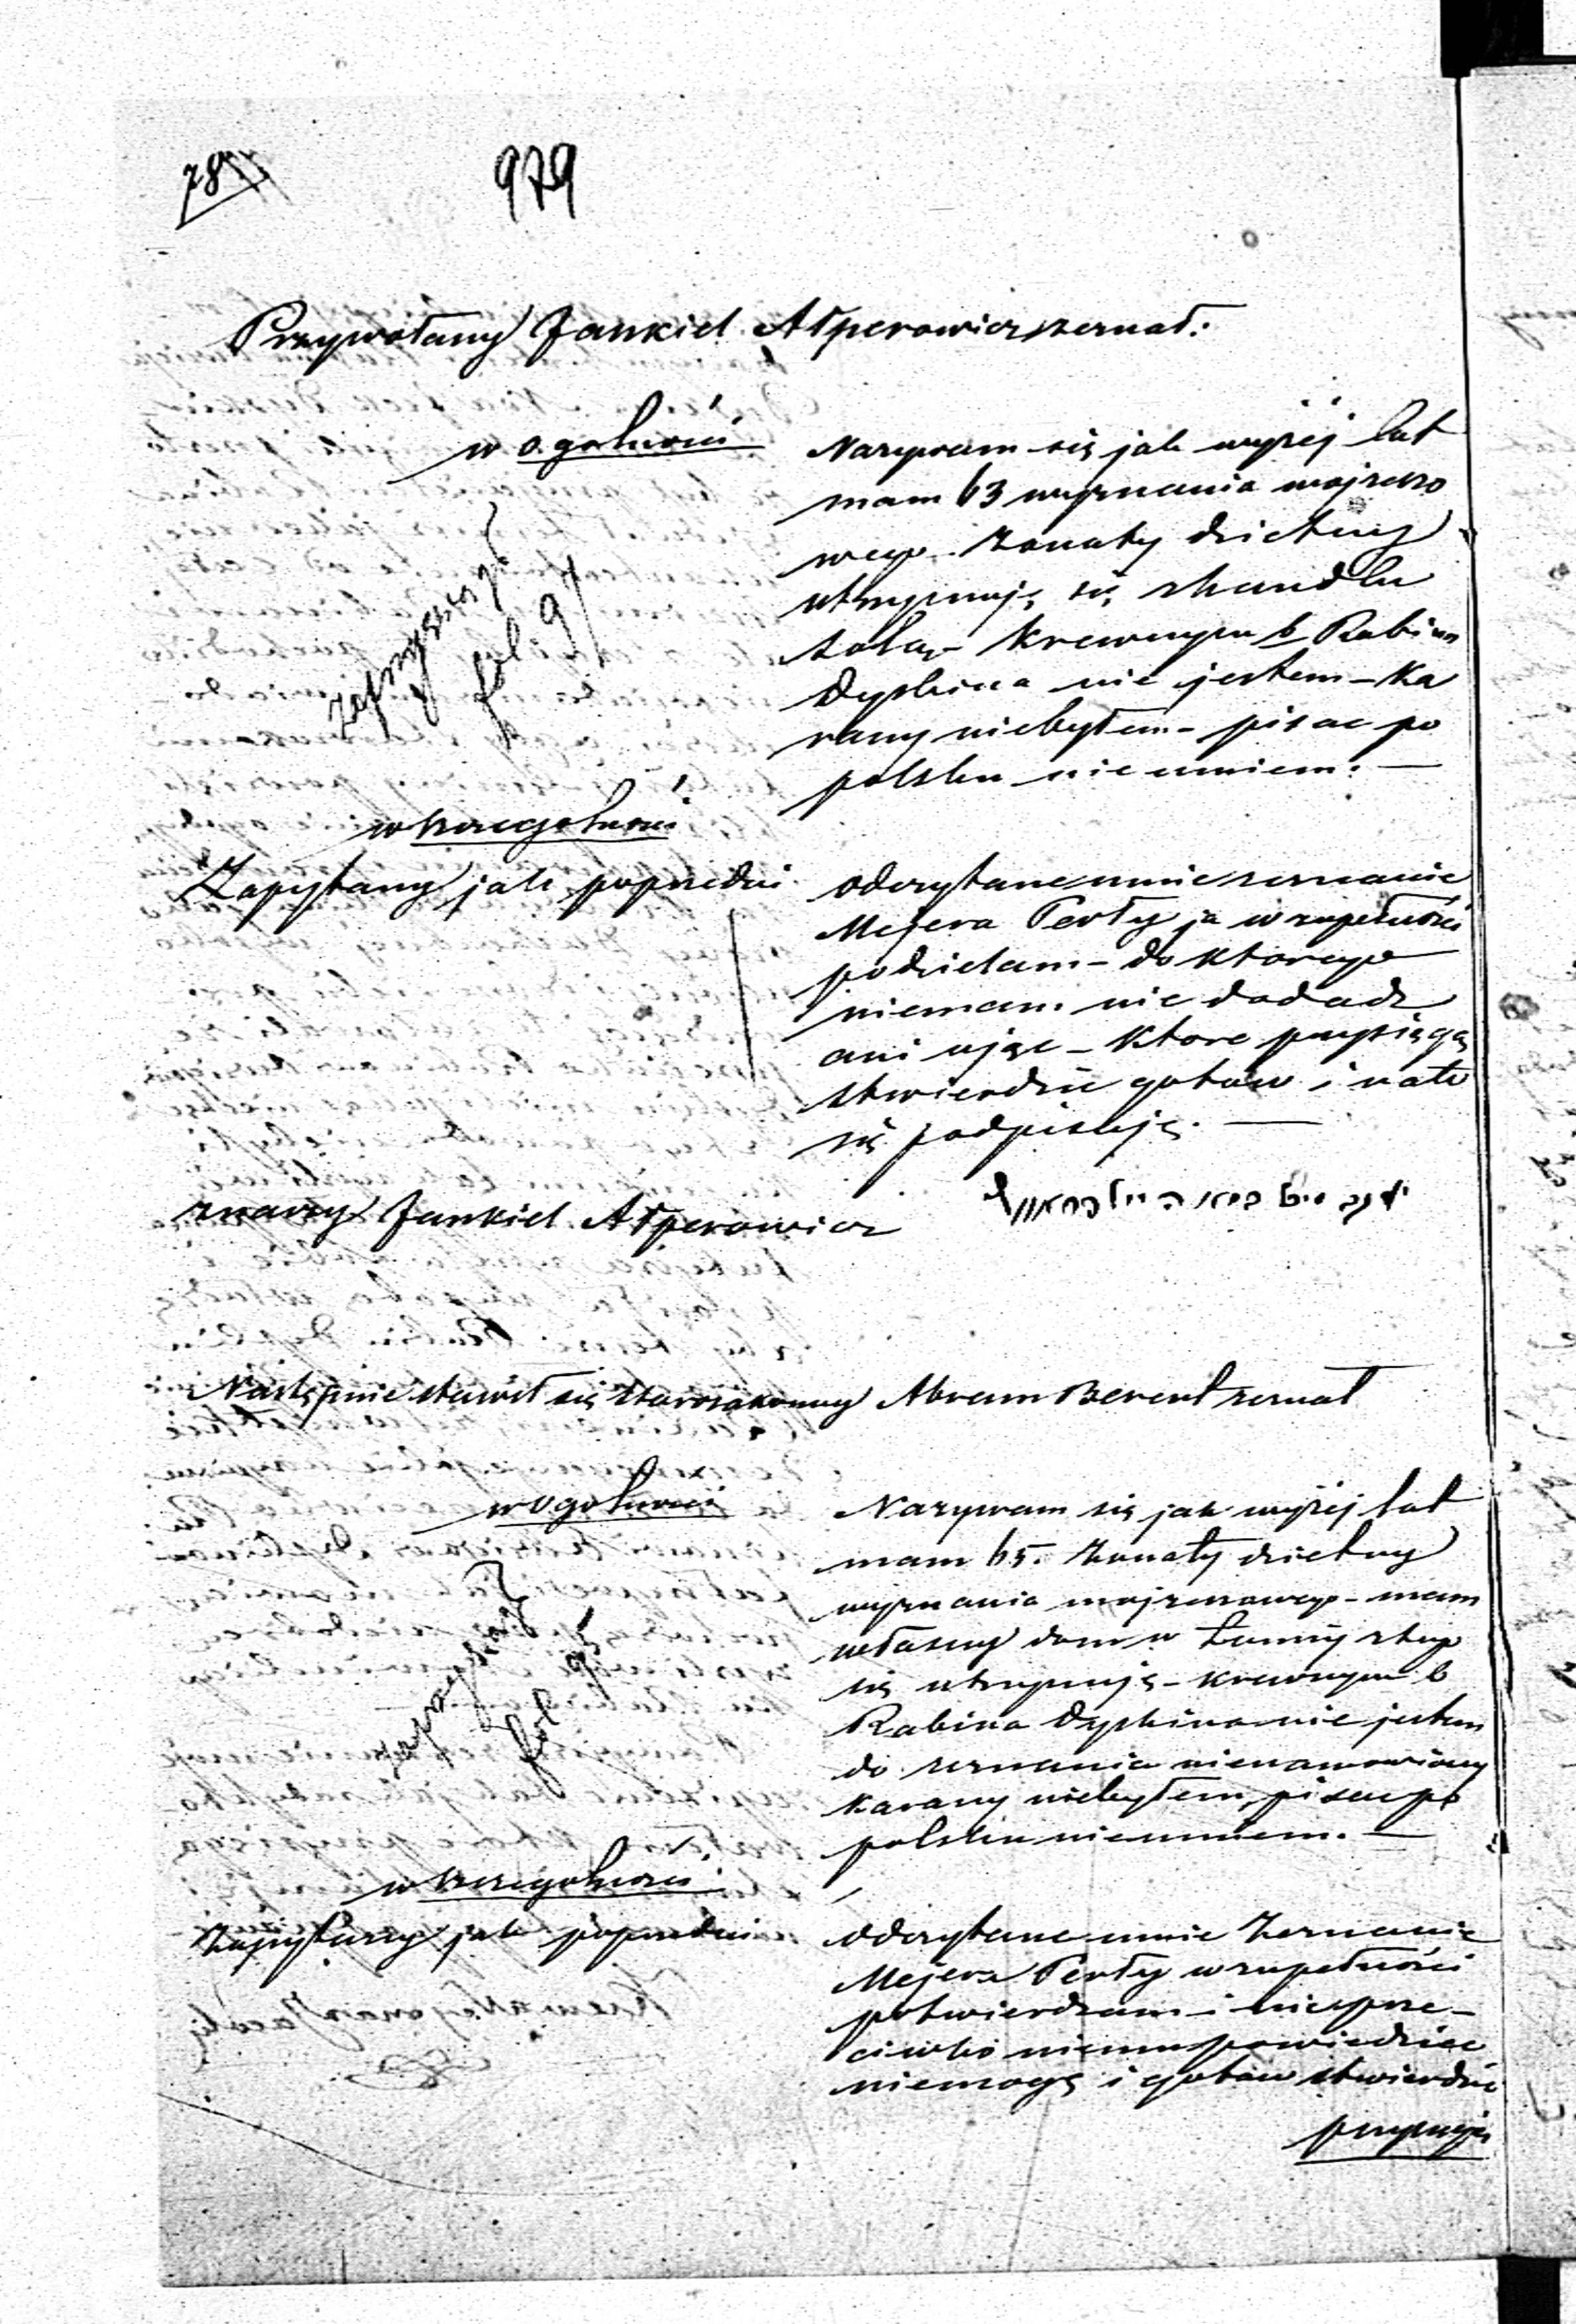 78
979
Przywołany Jankiel Ałperowicz zeznał:
w ogolnosci
Nazywam się jak wyżej lat
mam 63 wyznania mojżeszo
wego żonaty dzietny
utrzymuję się z handlu
solą – krewnym b Rabina
Dyskina nie jestem – Ka
rany niebyłem – pisac po
polsku nie umiem. —
zaprzysiądz
fol 91
w szczegolnosci
Zapytany jak poprzedni
odczytane mnie zeznanie
Mejera Perły ja w zupełności
podzielam – do ktorego
niemam nic dodadz
ani ując – Ktore przysięgą
stwierdzic gotow i nato
się podpisuję. —
znawcy Jankiel Ałperowicz
Następnie stawił się Starozakonny Abram Berent zeznał
w Ogolnosci
Nazywam się jak wyżej lat
mam 65. żonaty dzietny
wyznania mojzeszowego – mam
własny dom w Łomży z tego
się utrzymuję – krewnym b
Rabina Dyskina nie jestem
do zeznania nienamowiony
Karany niebyłem, pisac po
polsku nieumiem. —
fol 91
w szczegolnosci
Zapytany jak poprzedni
odczytane mnie Zeznanie
Mejera Perły w zupełności
potwierdzam i nicprze-
ciwko niemu powiedziec
niemogę i gotow stwierdzic